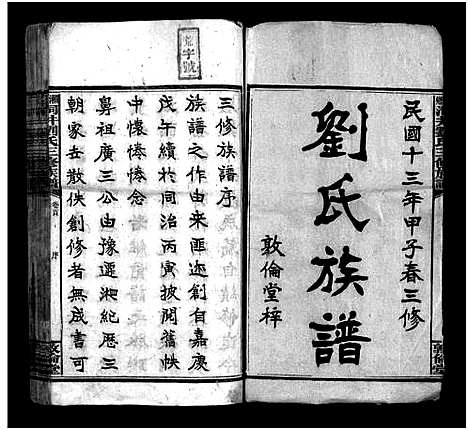 民國十三年甲子春三修
劉氏族譜
敦倫堂梓
字號
三修族譜序
族譜之作由來匪迩創自嘉慶
戊午續於同治丙寅披閱舊帙
中懷悽悽念
鼻祖廣三公由豫遷湘紀歷三
朝家去散佚創修者無成書可
劉氏三修族譜
卷首
序
敦倫堂